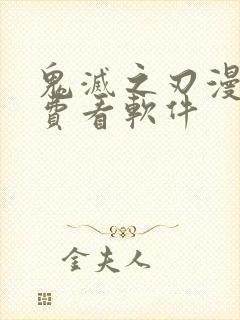 鬼滅之刃漫
費看軟件
金夫人